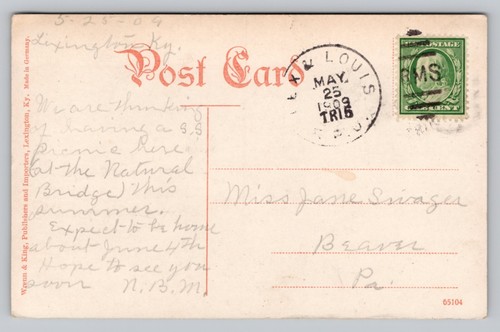 5-25-09
Lexington Ky.
Post Card
We are thinking
of having a S.S
picnic here
(at the Natural
Bridge) this
summer.
Expect to be home
about June 4th
Hope to see you
soon N.B.M.
LEX & LOUIS
MAY
25
1909
TRI5
R.P.O.
RMS
Miss Jane
Beaver
Pa.
Wynn & King, Publishers and Importers, Lexington, Ky. Made in Germany.
D5104